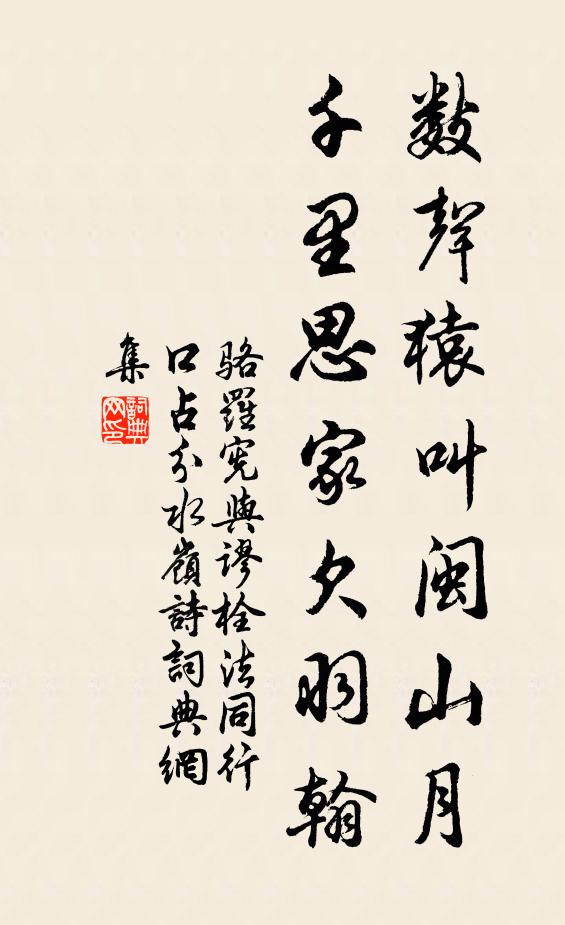 數聲猿叫閩山月
千里思家欠羽翰
駱羅憲與謬栓法同行
口占分水嶺詩詞典網
集
詞典
网印